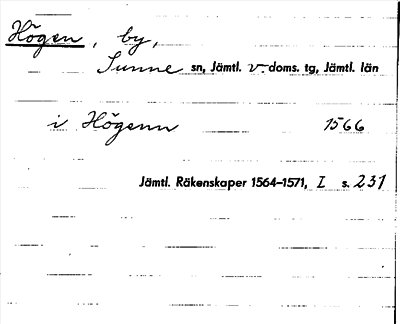 Högen, by,
Sunne sn, Jämtl. v. doms. tg, Jämtl. län
i Högenn 1566
Jämtl. Räkenskaper 1564–1571, I s. 231